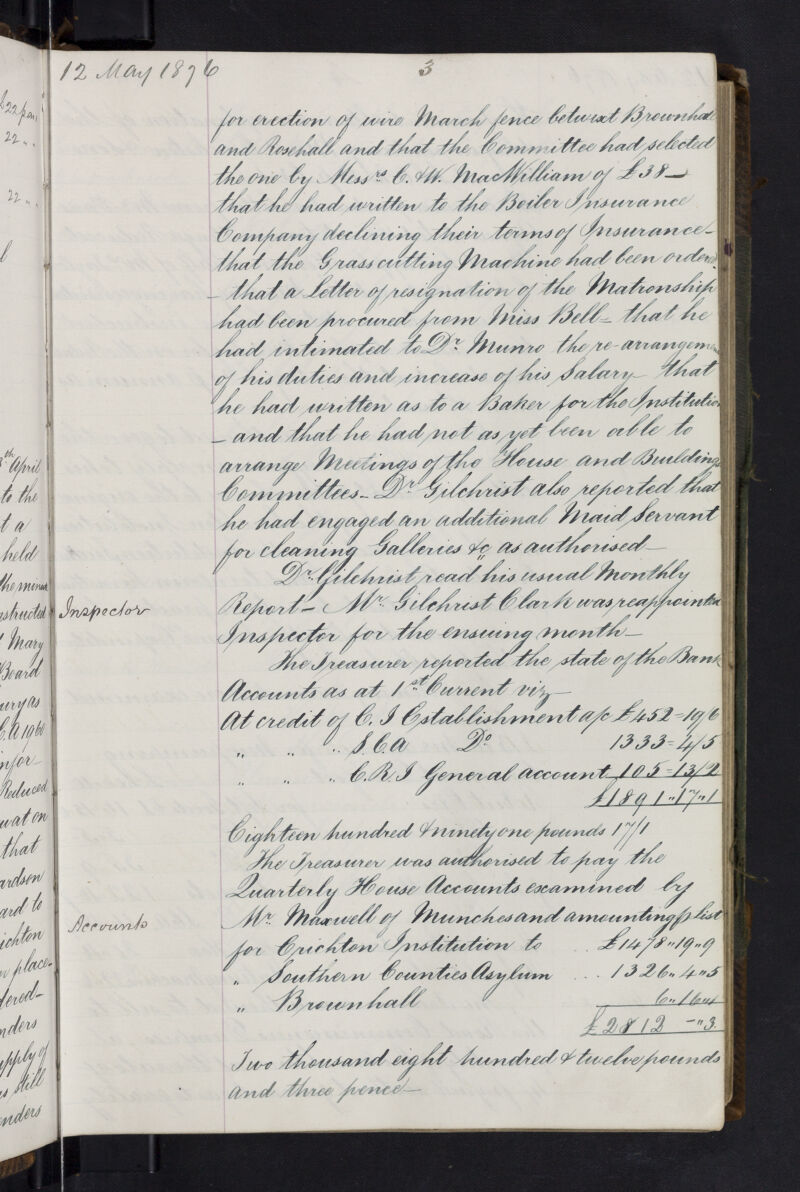 £22 per
22 " "
22 " "
l
th April
to the
t a
held
the
nstructed
Mary
Board
ury as
infor-
Reduced
uat on
that
ardson
ard to
ichton
place-
dered-
nders
upply of
as still
enders
12 May 1876
3
for erection of wire March fence betwixt Brownhall
and Rosehall and that the Committee had selected
the one by Messrs. C. & W. MacWilliam of £38 –
that he had written to the Boiler Insurance
Company declining their terms of Insurance –
that the Grasscutting Machine had been ordered
– that a Letter of resignation of the Matronship
had been procured from Miss Bell – that he
had intimated to Dr. Munro the re-arrangemen
of his duties and increase of his Salary – that
he had written as to a Baker for the Institution
– and that he had not as yet been able to
arrange Meetings of the House and Buildings
Committees – Dr. Gilchrist also reported that
he had engaged an additional Maid Servant
for cleaning Galleries &c as authorised –
Dr. Gilchrist read his usual Monthly
Inspector
Report – Mr. Gilchrist Clark was reappointed
Inspector for the ensuing month –
The Treasurer reported the state of the Bank
Accounts as at 1st. Current viz
At credit of C. I Establishment a/c £452 = 19/6
" " " S. C. A Do 1333 = 4/5
" " " C. R. I General account 105 = 13/2
£1891 " 17 " 1
Eighteen hundred & ninety one pounds 17/1
The Treasurer was authorised to pay the
Quarterly House Accounts examined by
Accounts
Mr. Maxwell of Munches and amounting p list
for Crichton Institution to .. £1478 " 19 " 9
" Southern Counties Asylum ... 1326 " 4 " 5
" Brownhall 6 " 16 " 1
£2812 – " 3.
Two thousand eight hundred & twelve pounds
and three pence –